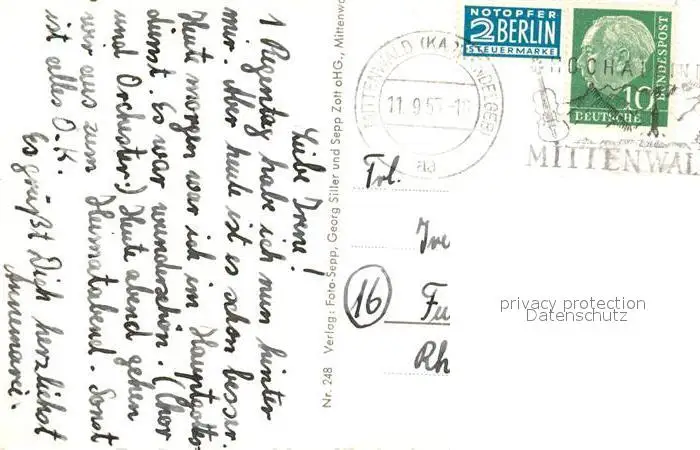 Liebe Irene!
1 Regentag habe ich nun hinter
mir. Aber heute ist es schon besser.
Heute morgen war ich im Hauptgottes
dienst. Es war wunderschön. (Chor
und Orchester.) Heute abend gehen
wir aus zum Heimatabend. Sonst
ist alles O.K.
Es grüßt Dich herzlichst
Annemarie.
Nr. 248 Verlag: Foto-Sepp, Georg Siller und Sepp Zott oHG., Mittenw
NOTOPFER
2 BERLIN
STEUERMARKE
DEUTSCHE
BUNDESPOST
10
MITTENWALD (KARWENDELGEB)
11.9.55-1
aa
HOCHAL
MITTENWAL
Frl.
Ire
16
Fu
Rh
privacy protection
Datenschutz